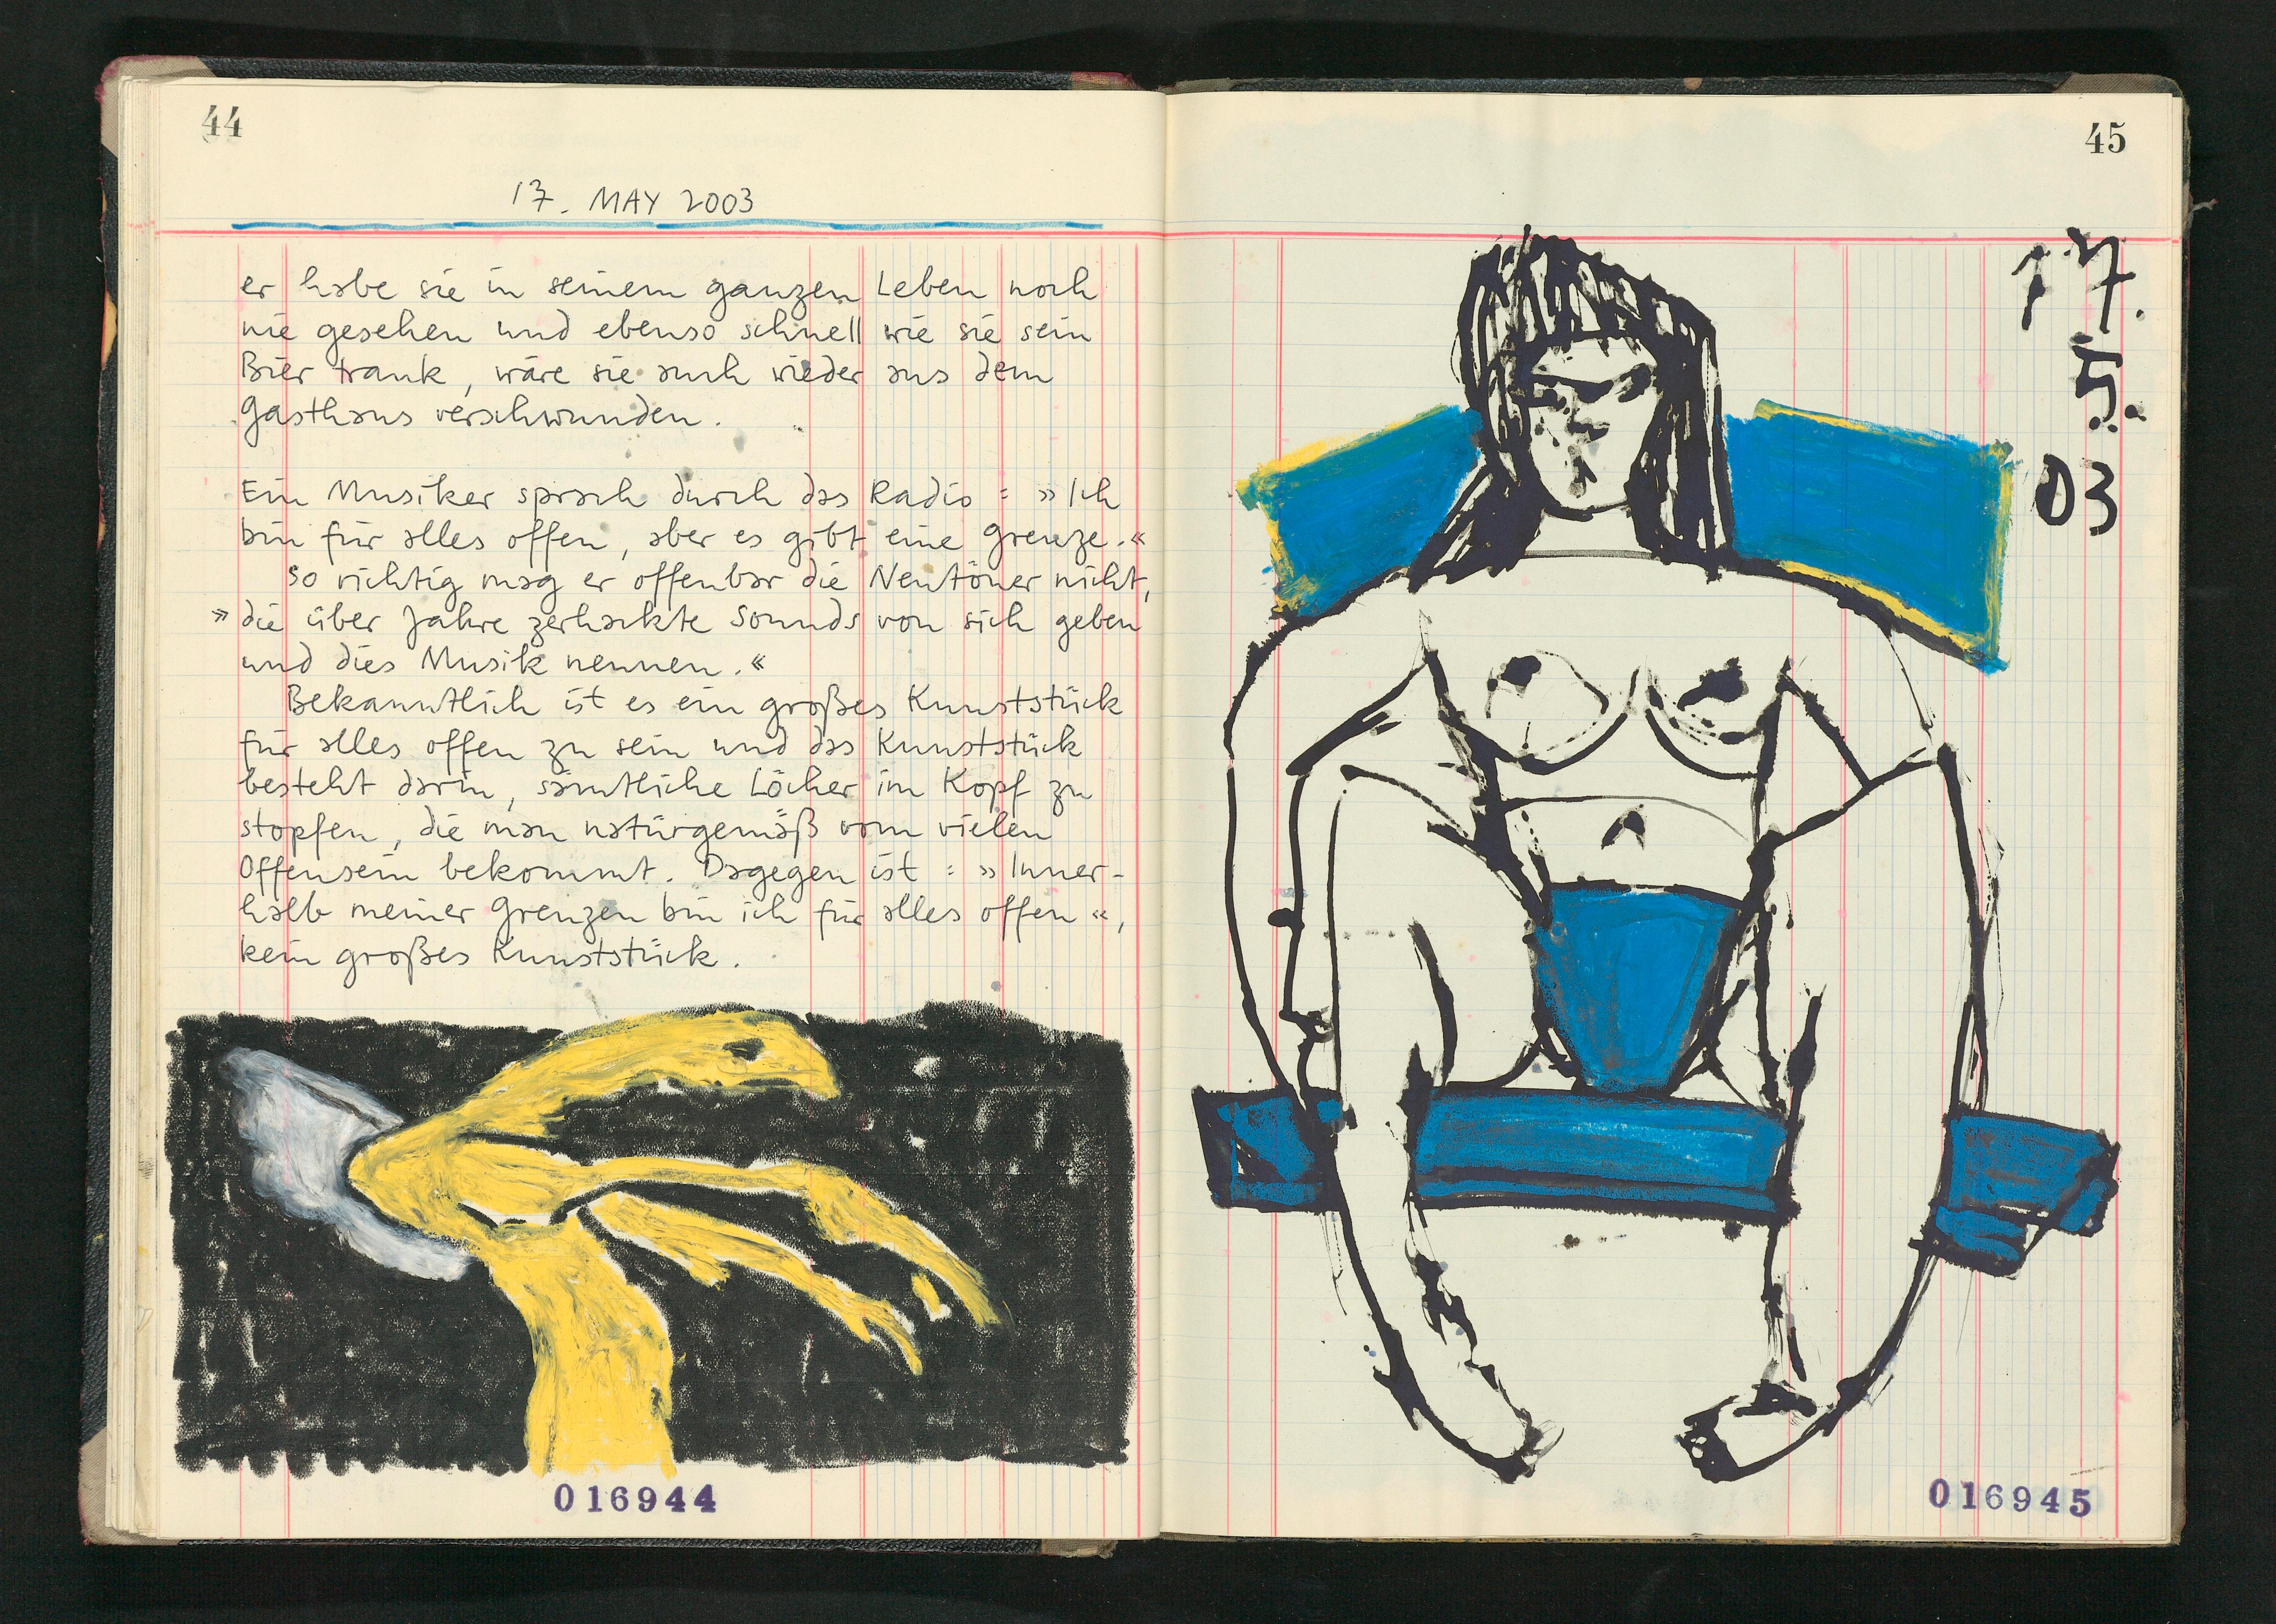 44
17. MAY 2003
er habe sie in seinem ganzen Leben noch
nie gesehen und ebenso schnell wie sie sein
Bier trank, wäre sie auch wieder aus dem
Gasthaus verschwunden.
Ein Musiker sprach durch das Radio: »Ich
bin für alles offen, aber es gibt eine Grenze.«
So richtig mag er offenbar die Neutöner nicht,
»die über Jahre zerhackte Sounds von sich geben
und dies Musik nennen.«
Bekanntlich ist es ein großes Kunststück
für alles offen zu sein und das Kunststück
besteht darin, sämtliche Löcher im Kopf zu
stopfen, die man naturgemäß vom vielen
Offensein bekommt. Dagegen ist: »Inner-
halb meiner Grenzen bin ich für alles offen«,
kein großes Kunststück.
016944
45
17.
5.
03
016945